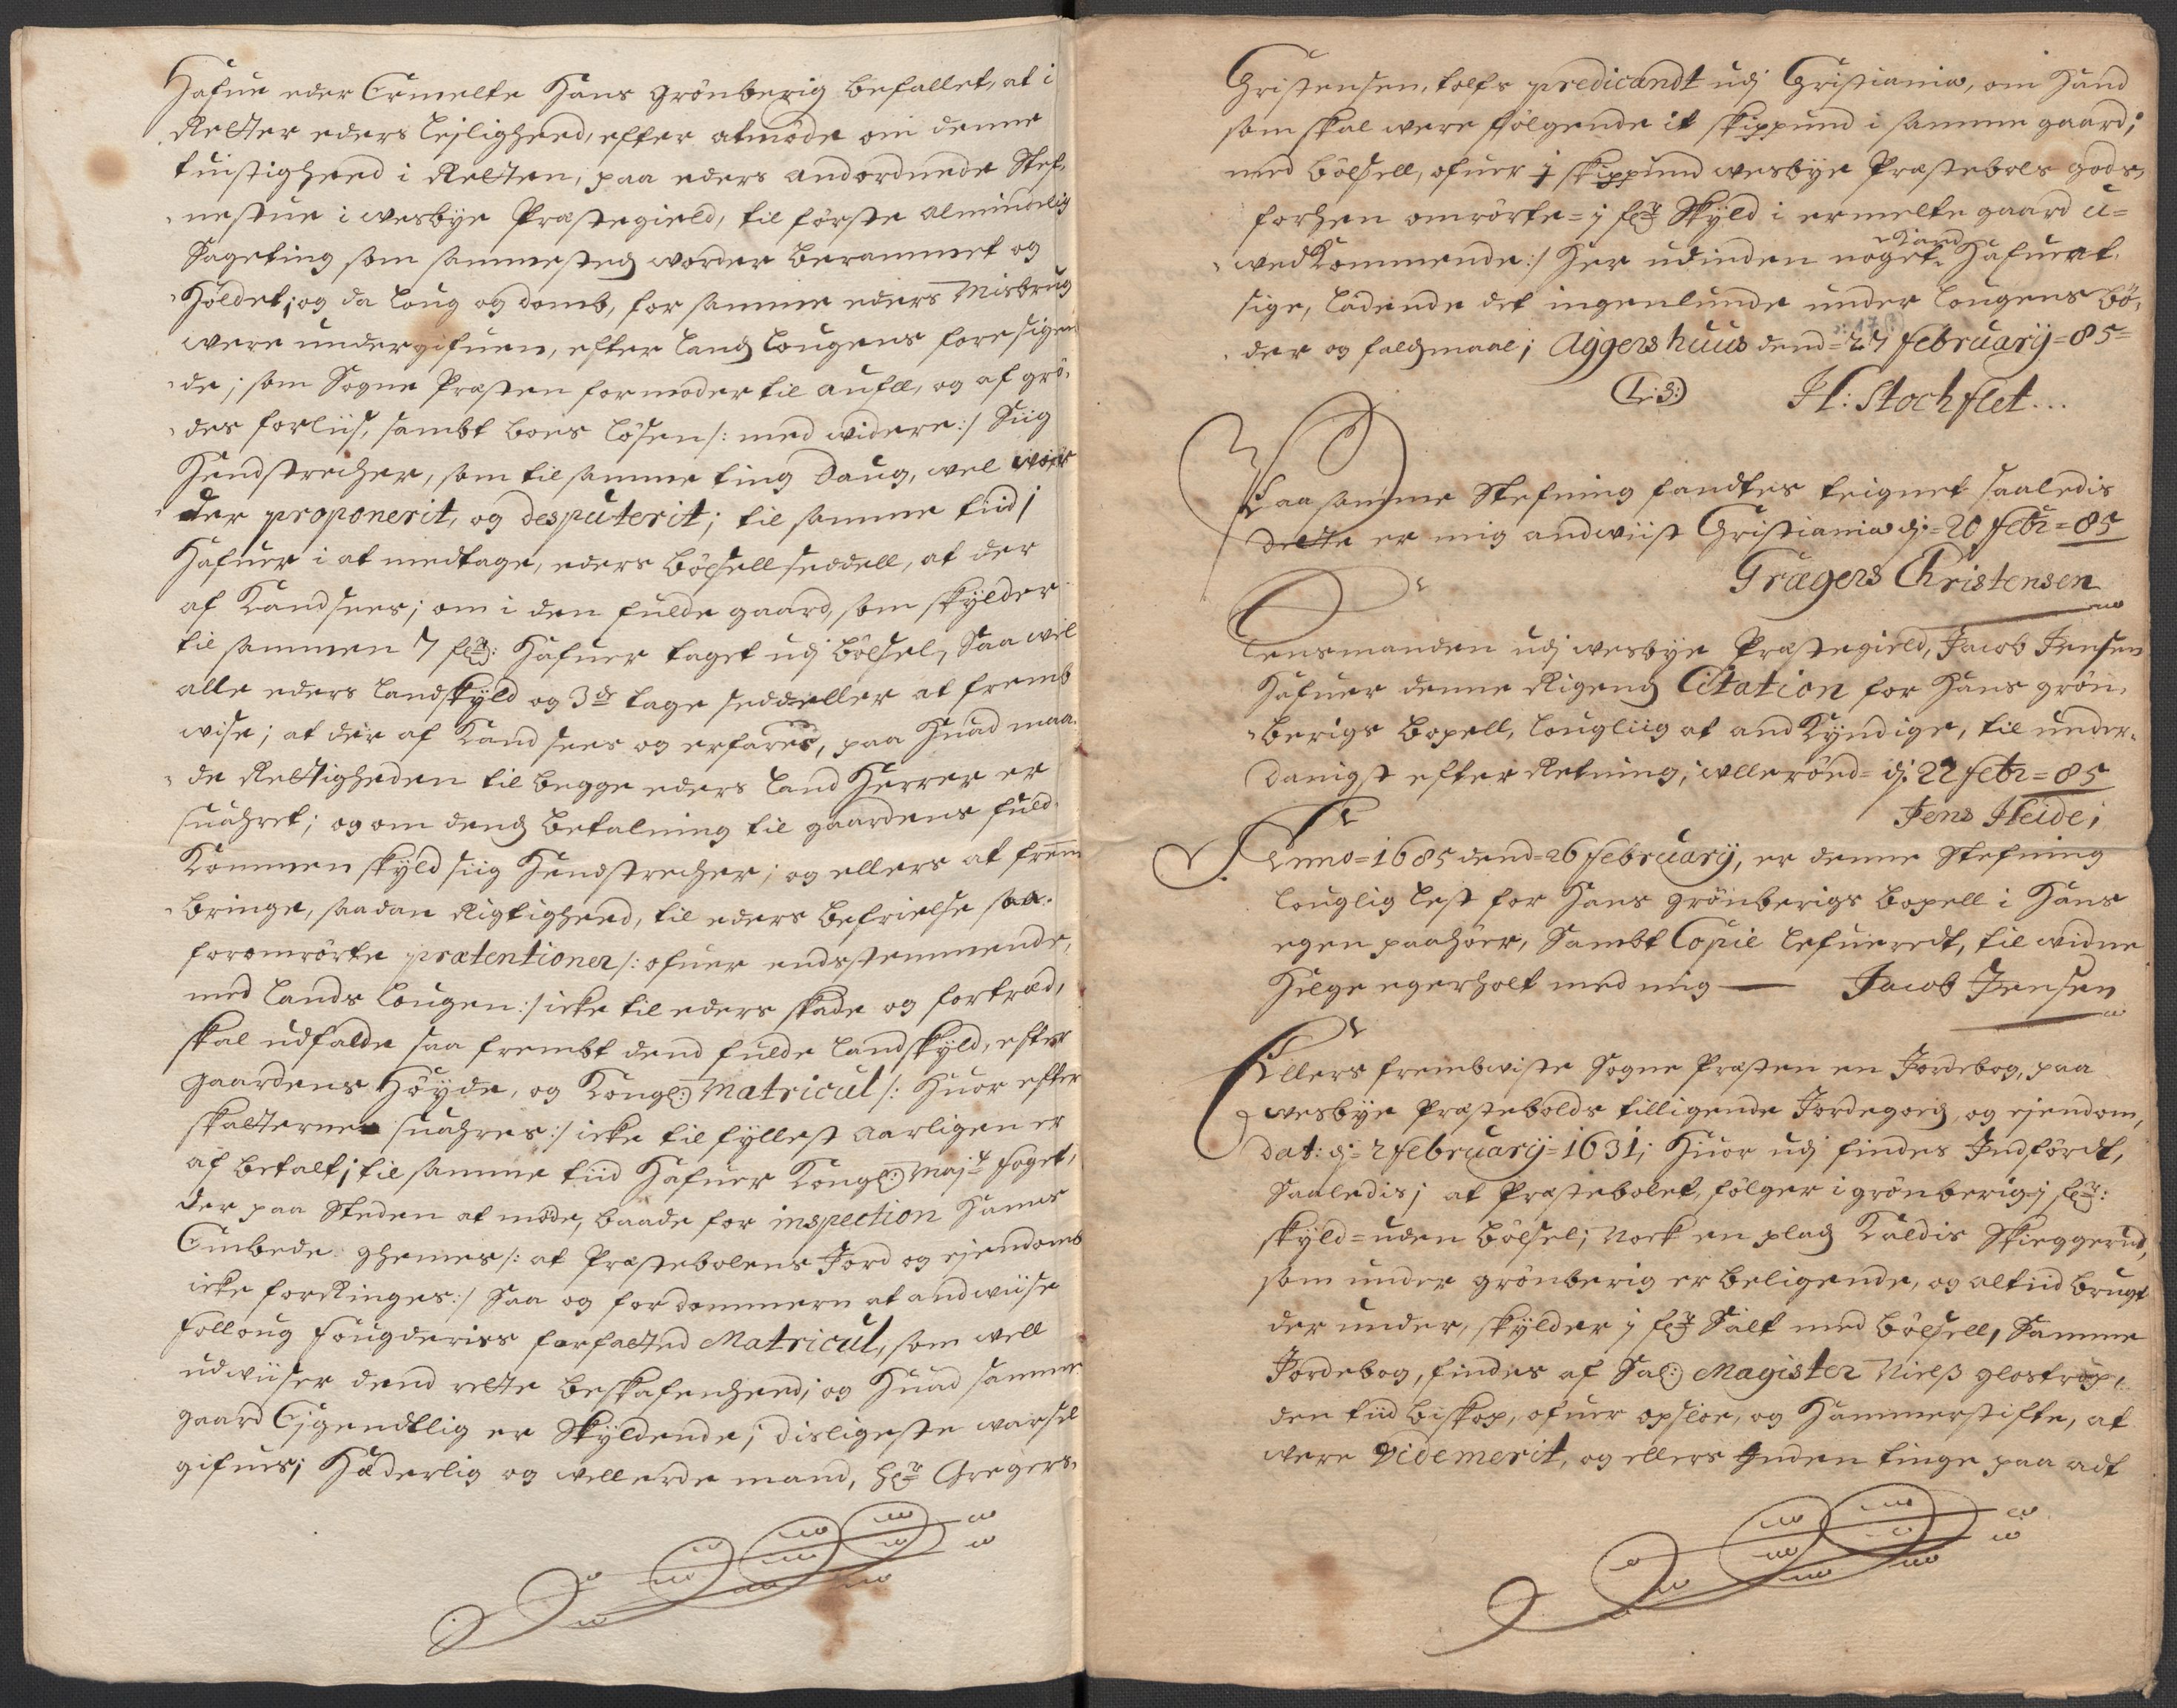 Hafue eder Ermelte Hans Grönberig befallet, at i
Retter eders leiligheed, efter atmöde om denne
tuistigheed i Retten, paa eders andordnede Stef-
nestue i wesbÿe Præstegield, til förste almindelig
Sageting som sammestedz worder berammet og
Höldet; og da loug og domb, for samme eders Misbrug
were undergifuen, efter landz Lougens foresigen
de; som Sogne Præsten formoder til aufll, og af grö-
des forliis, sambt boes lösen /: med widere :/ Siig
Hendstrecher, som til samme ting daug, wel wor
der proponerit, og desputerit; til samme tiid
Hafuer i at medtage, eders böxsell seddell, at der
af Kand sees; om i den fulde gaard, som skÿlder
til sammen 7 slr: Hafuer taget udj bölsel, Saa wel
alle eders landskÿld og 3de tage seddeller at fremb
wise; at der af Kand sees og erfares, paa huad maa-
de Rettigheden til begge eders land Herrer er
suahret; og om dendz betalning til gaardens fuld-
Kommen skÿld siig Hendstrecher; og ellers at frem
bringe, saadan Rigtigheed, til eders befrielse saa-
foromrörte prætentioner /: ofuer eendsstemmende,
med lands lougen :/ icke til eders skade og fortræd,
skal udfalde saa frembt dend fulde landskÿld, efter
gaardens Höÿde, og Kongl: Matricul /: Huor efter
skatterne suahres :/ icke til fÿllest aarligen er
af betalt; til samme tiid Hafuer Kongl: Majts foget,
der paa Steden at möde, baade for inspection Hanns
Embede ghemes /: at Præstebolens Jord og ejendomb
icke forringes :/ Saa og for dommern at andwiise
folloug fougderies forfatted Matricul, som well
udwiiser dend rette beskafenheed; og Huad samme
gaard Ejgendtlig er Skÿldende; disligeste warsel
gifues; Hæderlig og wellerde mand, Hr Gregers
Christensen, tolfs predicandt udj Christiania, om Hand
som skal were fölgende it skippund i samme gaard,
med bölsell, ofuer j skippund wesbÿe Præstebols gods,
forhen omrörte = j slr Skÿld i ermelte gaard u-
wedkommende :/ Her udinden noget Kand Hafue at
sige, ladende det ingenlunde under lougens bö-
der og faldzmaal; Aggershuus dend = 27 februarij = 85 =
(L: S:) H: Stochflet...
Paa samme Stefning fandtes teignet saaledis
dette er mig andwiist Christiania dj = 20 febr = 85
Grægers Christensen
Lensmanden udj wesbÿe Præstegield, Jacob Jensen
Hafuer denne Rigens Citation for Hans grön-
berigs boxell, lougliig at andkÿndige, til under-
danigst efter Retning; Ullerönd = dj: 22 febr = 85
Jens Heide;
Anno = 1685 dend = 26 februarij, er denne Stefning
louglig lest for Hans grönberigs boxell i Hans
egen paahöer, Sambt Copie lefueredt, til widne
Helge egerholt med mig — Jacob Jensen
Ellers frembwiste Sogne Præsten en Jordebog, paa
wesbÿe Præstebolds tilligende Jordegodz, og ejendom,
dat: dj = 2 februarij = 1631; Huor udj findes Indfördt,
Saaledis; at Præstebolet, fölger i grönberig j slr:
skÿld = uden bölsel; Nock en pladz Kaldis Skieggerud,
som under grönberig er beligende, og altiid brugt
der under, skÿlder j slr Salt med bölsell, Samme
Jordebog, findes af Sal: Magister Nielß glostrup
den tiid biskop, ofuer opsloe, og Hammerstifte, at
were Videmerit, og ellers Inden tinge paa adt